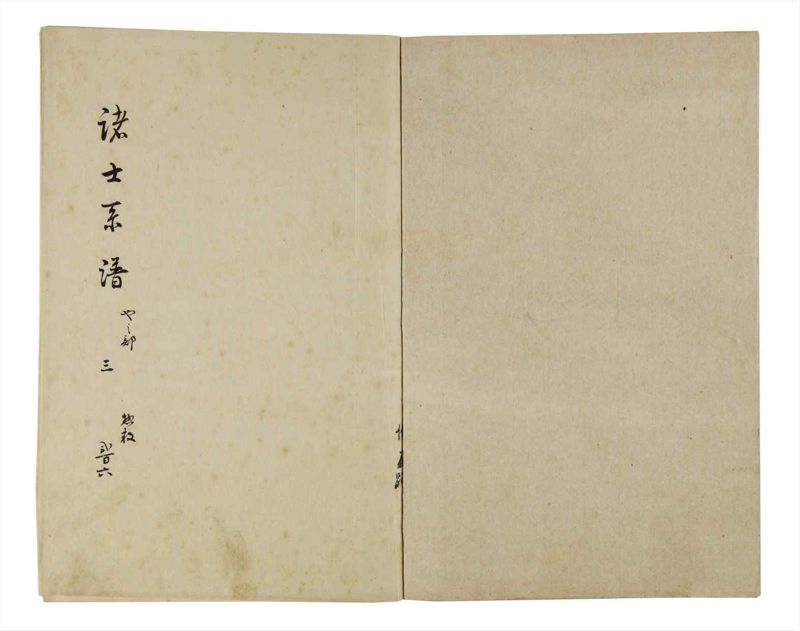 諸士系譜
や之部
三
惣数
弐百六